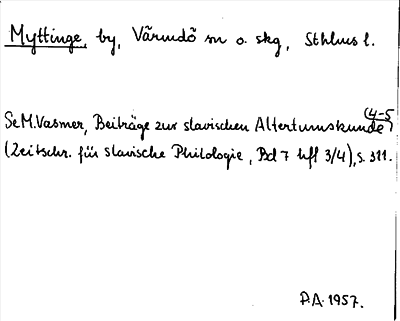 Myttinge, by, Värmdö sn o. skg, Sthlms l.
(4-5)
Se M. Vasmer, Beiträge zur slavischen Altertumskunde
(Zeitschr. für slavische Philologie, Bd 7 hft 3/4), s. 311.
P.A. 1957.